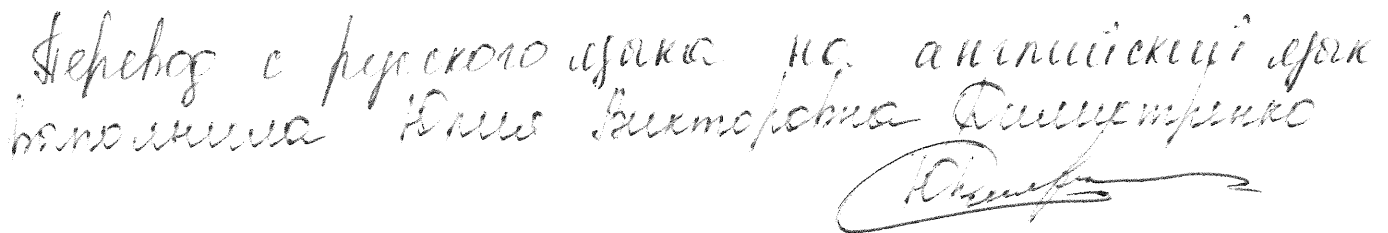 Перевод с русского языка на английский язык
выполнила Юлия Викторовна